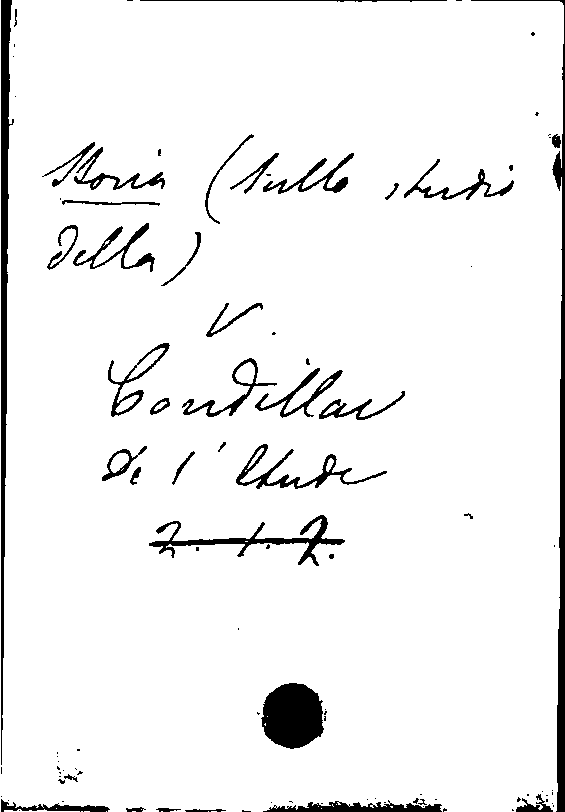 Storia (sullo studio
della)
V.
Condillac
De l'Etude
2. 1. 2.